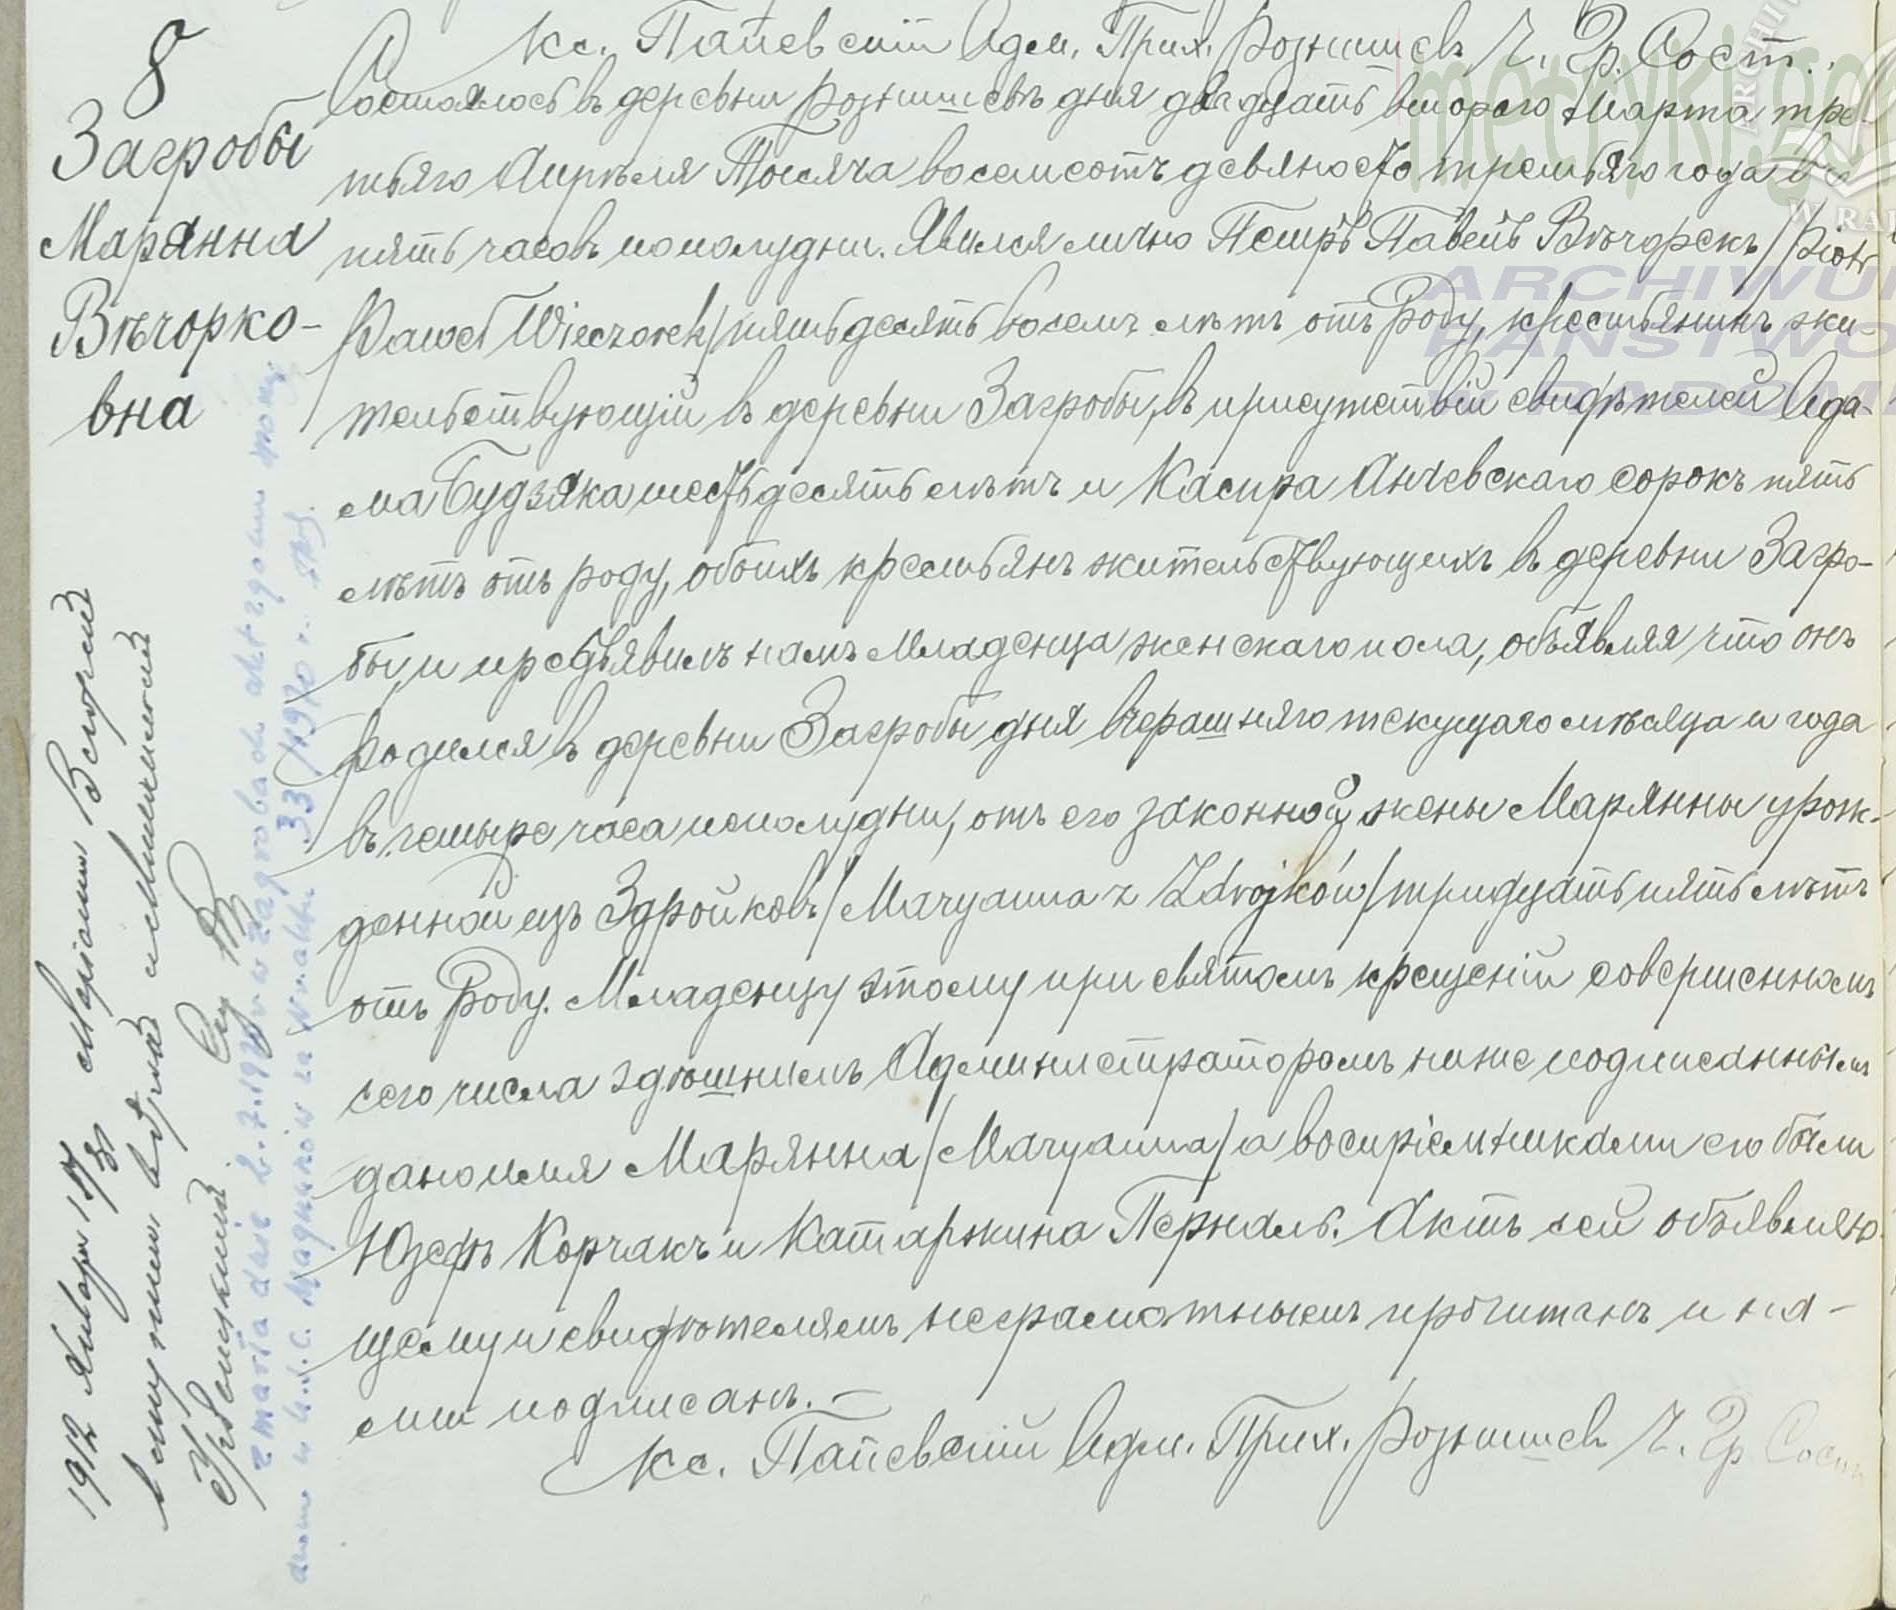 Кс. Папевскій Адм. Прих. Рознишевъ Ч. Гр. Сост.
8
Загробы
Марянна
Вѣчорко-
вна
Состоялось въ деревни Рознишевѣ дня двадцать второго Марта тре-
тьяго Апрѣля Тысяча восемсотъ девяносто третьяго года въ
пять часовъ пополудни. Явился лично Петръ Павелъ Вѣчорекъ /Piotr
Paweł Wieczorek/ пятьдесять восемъ лѣтъ отъ роду, крестьянинъ жи-
тельствующій въ деревни Загробы, въ присутствіи свидѣтелей Ада-
ма Будзяка шестьдесять лѣтъ и Каспра Анчевскаго сорокъ пять
лѣтъ отъ роду, обоихъ крестьянъ жительствующихъ въ деревни Загро-
бы, и предъявилъ намъ Младенца женскаго пола, объявляя что онъ
родился въ деревни Загробы дня вчерашняго текущаго мѣсяца и года
въ четыре часа пополудни, отъ его законной жены Марянны урож-
денной изъ Здройковъ /Maryanna z Zdrojków/ тридцать пять лѣтъ
отъ роду. Младенцу этому при святомъ крещеніи совершенномъ
сего числа здѣшнимъ Администраторомъ ниже подписаннымъ
дано имя Марянна /Maryanna/ а воспріемниками его были
Юзефъ Корчакъ и Катаржина Перналь. Актъ сей объявляю
щему и свидѣтелямъ неграмотнымъ прочитанъ и на-
ми подписанъ.—
Кс. Папевскій Адм. Прих. Рознишевъ Ч. Гр. Сост
1912 Января 15/28 Маріанна
вступила въ бракъ
zmarła dnia 6.7.1970 r w Zagrobach akt zgonu
33/1970 r.
metryki.ge
ARCHIWU
PAŃSTWO
RADOM
W RA